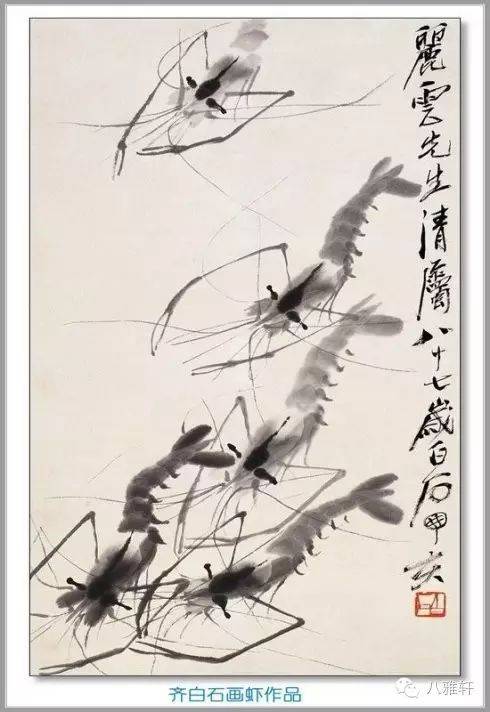 麗雲先生清屬八十七歲白石
齐白石画虾作品
八雅轩